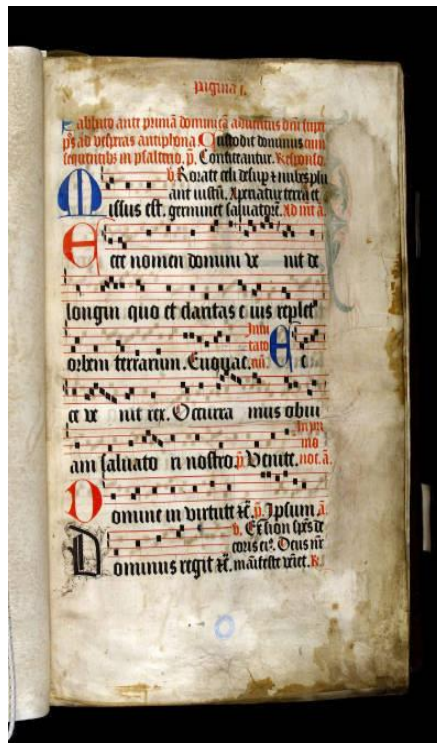 pagina i.
Sabbato ante primā dominicā adventus dñi supͬ
pͦs ad vesperas antiphona. Custodit dominus cum
sequentibus in psalterio. p̄. Confiteantur. Responso.
v. Rorate celi desuꝑ ⁊ nubes plu
ant iustū. Aperiatur terra et
issus est. germinet salvatorē. Ad int̄ a.
M
E cce nomen domini ve nit de
longin quo et claritas e ius replet
orbem terrarum. Euouae. Invi
tato
riū. E c
ce ve nit rex. Occurra mus obvi
am salvato ri nostro. p̄. Venite. In pri
mo
noc. ā.
D omine in virtute ⁊c̄. p̄. Ipsum. ā.
v. Ex sion spēs de
coris eiꝰ. Deus nr̄
D ominus regit ⁊c̄. manifeste veniet. R.